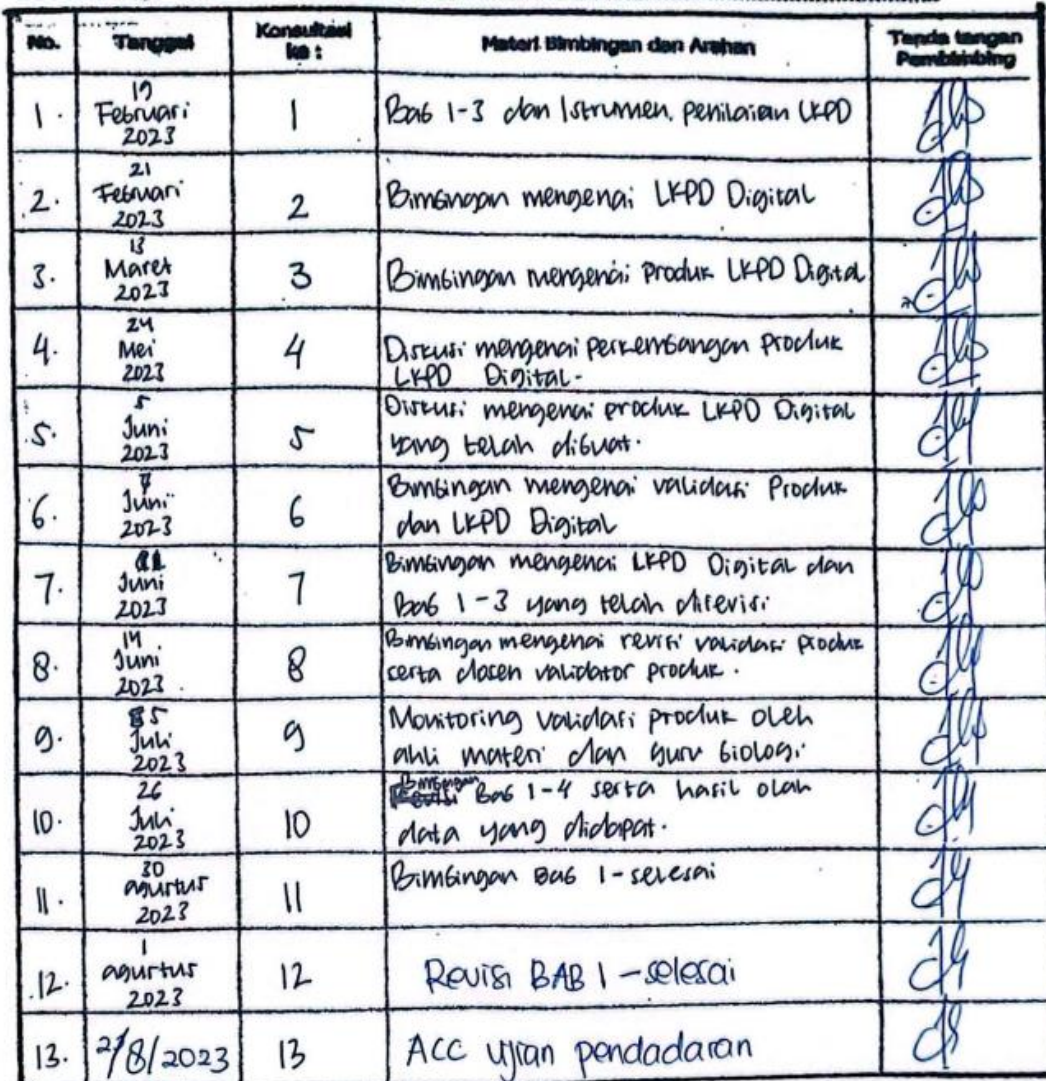 No. Tanggal Konsultasi ke : Materi Bimbingan dan Arahan Tanda tangan Pembimbing
1. 19 Februari 2023 1 Bab 1-3 dan Istrumen. penilaian LKPD
2. 21 Februari 2023 2 Bimbingan mengenai LKPD Digital
3. 13 Maret 2023 3 Bimbingan mengenai produk LKPD Digital
4. 24 Mei 2023 4 Diskusi mengenai perkembangan produk
LKPD Digital.
5. 5 Juni 2023 5 Diskusi mengenai produk LKPD Digital
yang telah dibuat.
6. 7 Juni 2023 6 Bimbingan mengenai validasi Produk
dan LKPD Digital
7. Juni 2023 7 Bimbingan mengenai LKPD Digital dan
Bab 1-3 yang telah direvisi
8. 14 Juni 2023 8 Bimbingan mengenai revisi validasi produk
serta dosen validator produk.
9. 5 Juli 2023 9 Monitoring validasi produk oleh
ahli materi dan guru biologi
10. 26 Juli 2023 10 Bimbingan Bab 1-4 serta hasil olah
data yang didapat.
11. 30 agustus 2023 11 Bimbingan Bab 1-selesai
12. 1 agustus 2023 12 Revisi BAB 1 - selesai
13. 2/8/2023 13 ACC ujian pendadaran